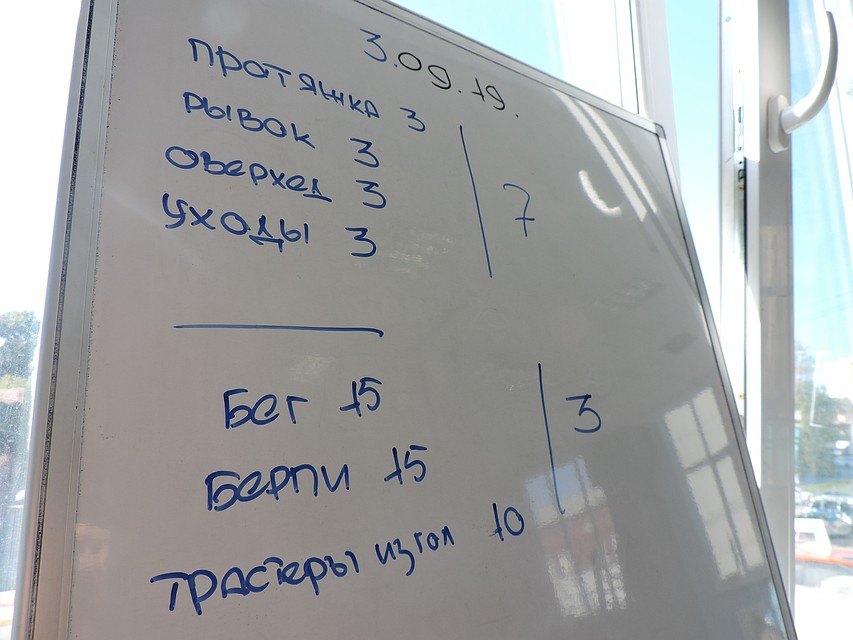 3.09.19.
ПРОТЯЖКА 3
РЫВОК 3
ОВЕРХЕД 3
УХОДЫ 3
7
БЕГ 15
БЕРПИ 15
ТРАСТЕРЫ ИЗ ГОЛ 10
3